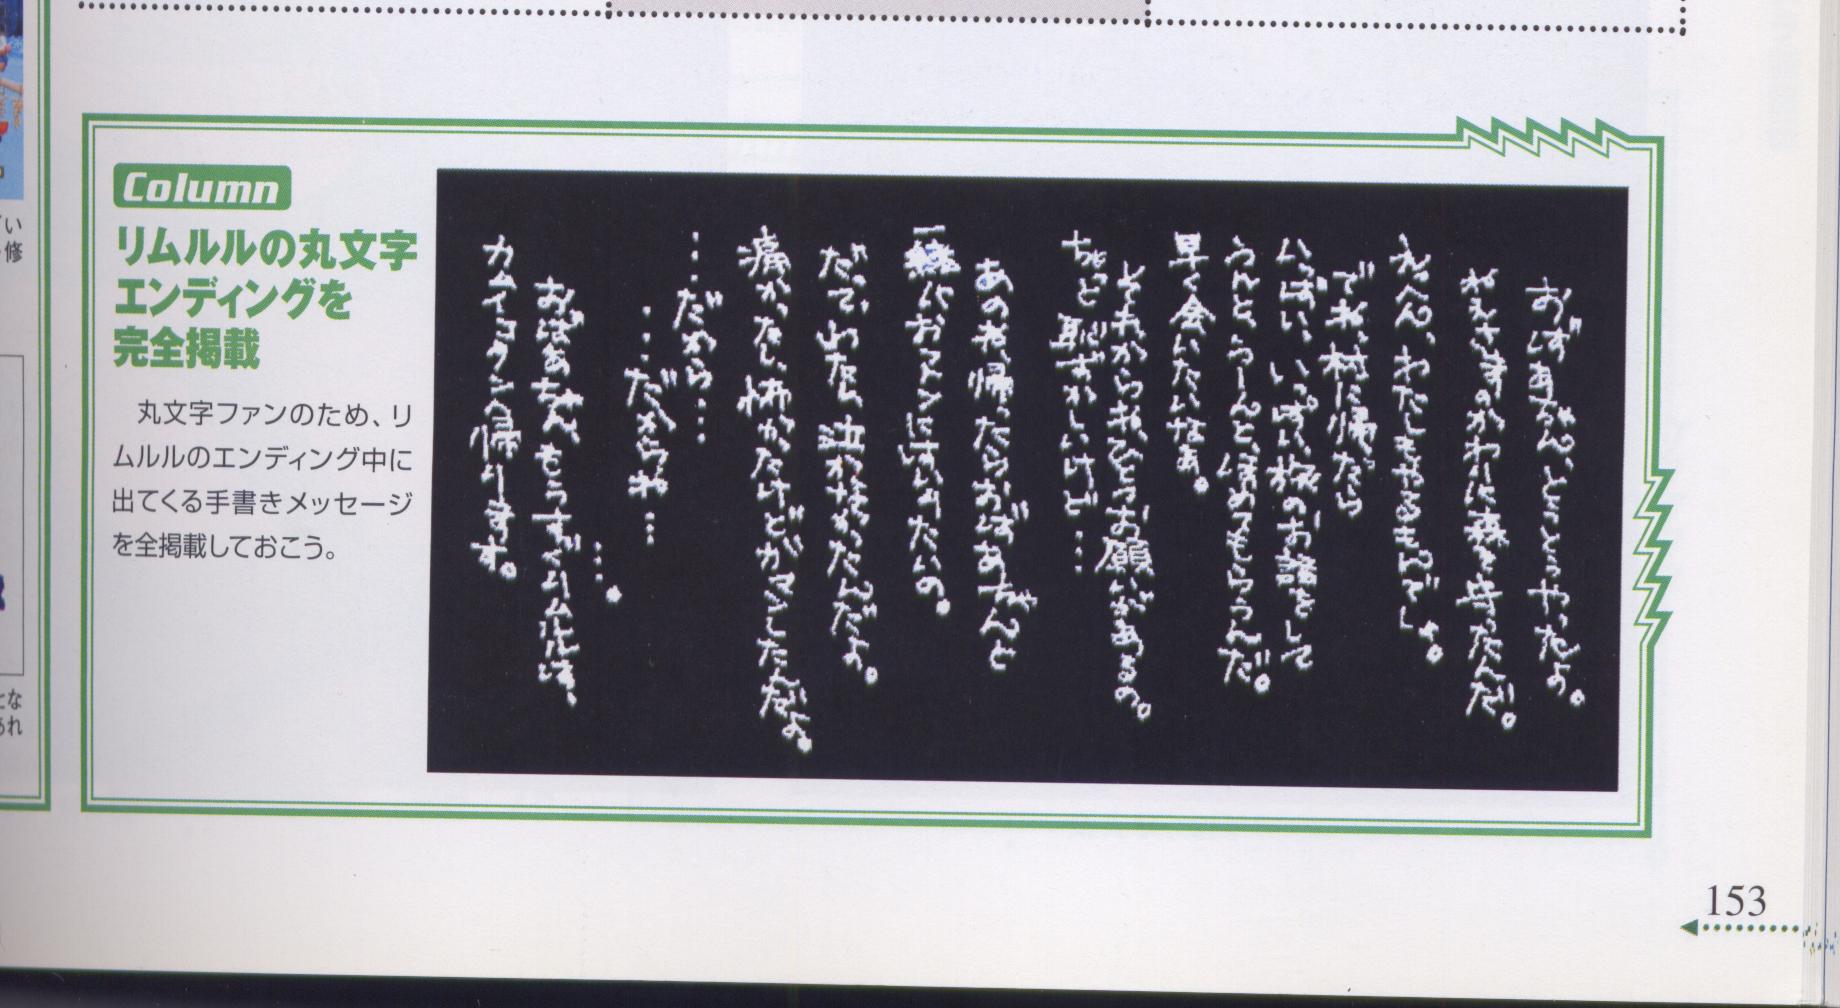 Column
リムルルの丸文字
エンディングを
完全掲載
丸文字ファンのため、リ
ムルルのエンディング中に
出てくる手書きメッセージ
を全掲載しておこう。
おばあちゃん、とうとうやったよ。
ねえさまのかわりに森を守ったんだ。
えへん、わたしもやるもんでしょ。
でね、村に帰ったら
いっぱい、いっぱい旅のお話をして
うんと、うーんと、ほめてもらうんだ。
早く会いたいなあ。
それからね、ひとつお願いがあるの。
ちょっと恥ずかしいけど…
あのね、帰ったらおばあちゃんと
一緒におフトンにはいりたいの。
だって、わたし、泣かなかったんだよ。
痛かったし、怖かったけどガマンしたんだよ。
…だから…
…だからね…
…。
おばあちゃん、もうすぐリムルルは、
カムイコタンへ帰ります。
い
修
な
あれ
153